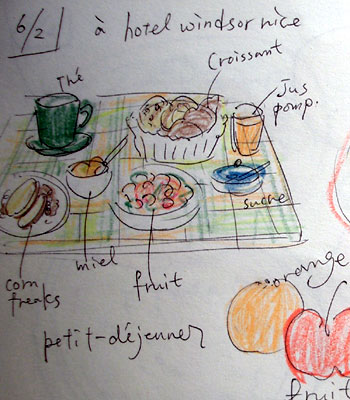 6/2
à hotel windsor nice
Croissant
Thé
Jus
pomp.
sucre
miel
fruit
corn
freaks
orange
petit-déjenner
fruit